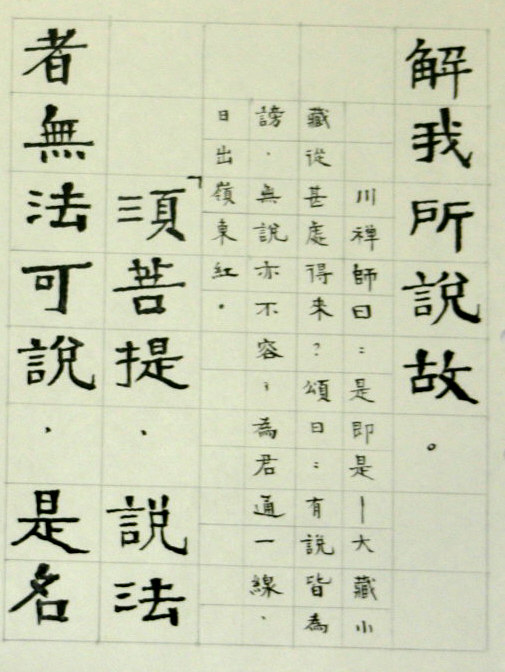 解我所說故。
川禪師曰：是即是—大藏小
藏從甚處得来？頌曰：有說皆為
謗，無說亦不容；為君通一線，
日出嶺東紅。
「須菩提，說法
者無法可說，是名